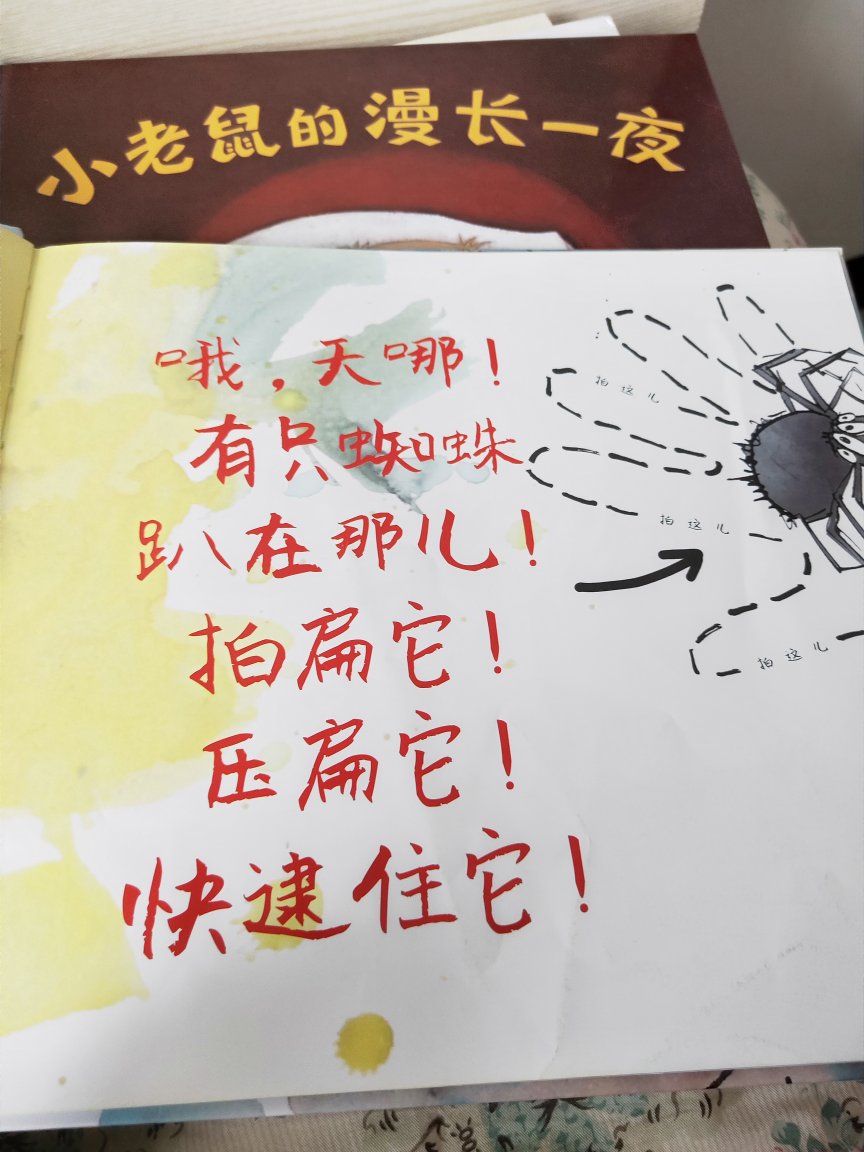 小老鼠的漫长一夜
哦，天哪！
有只蜘蛛
趴在那儿！
拍扁它！
压扁它！
快逮住它！
拍这儿
拍这儿
拍这儿